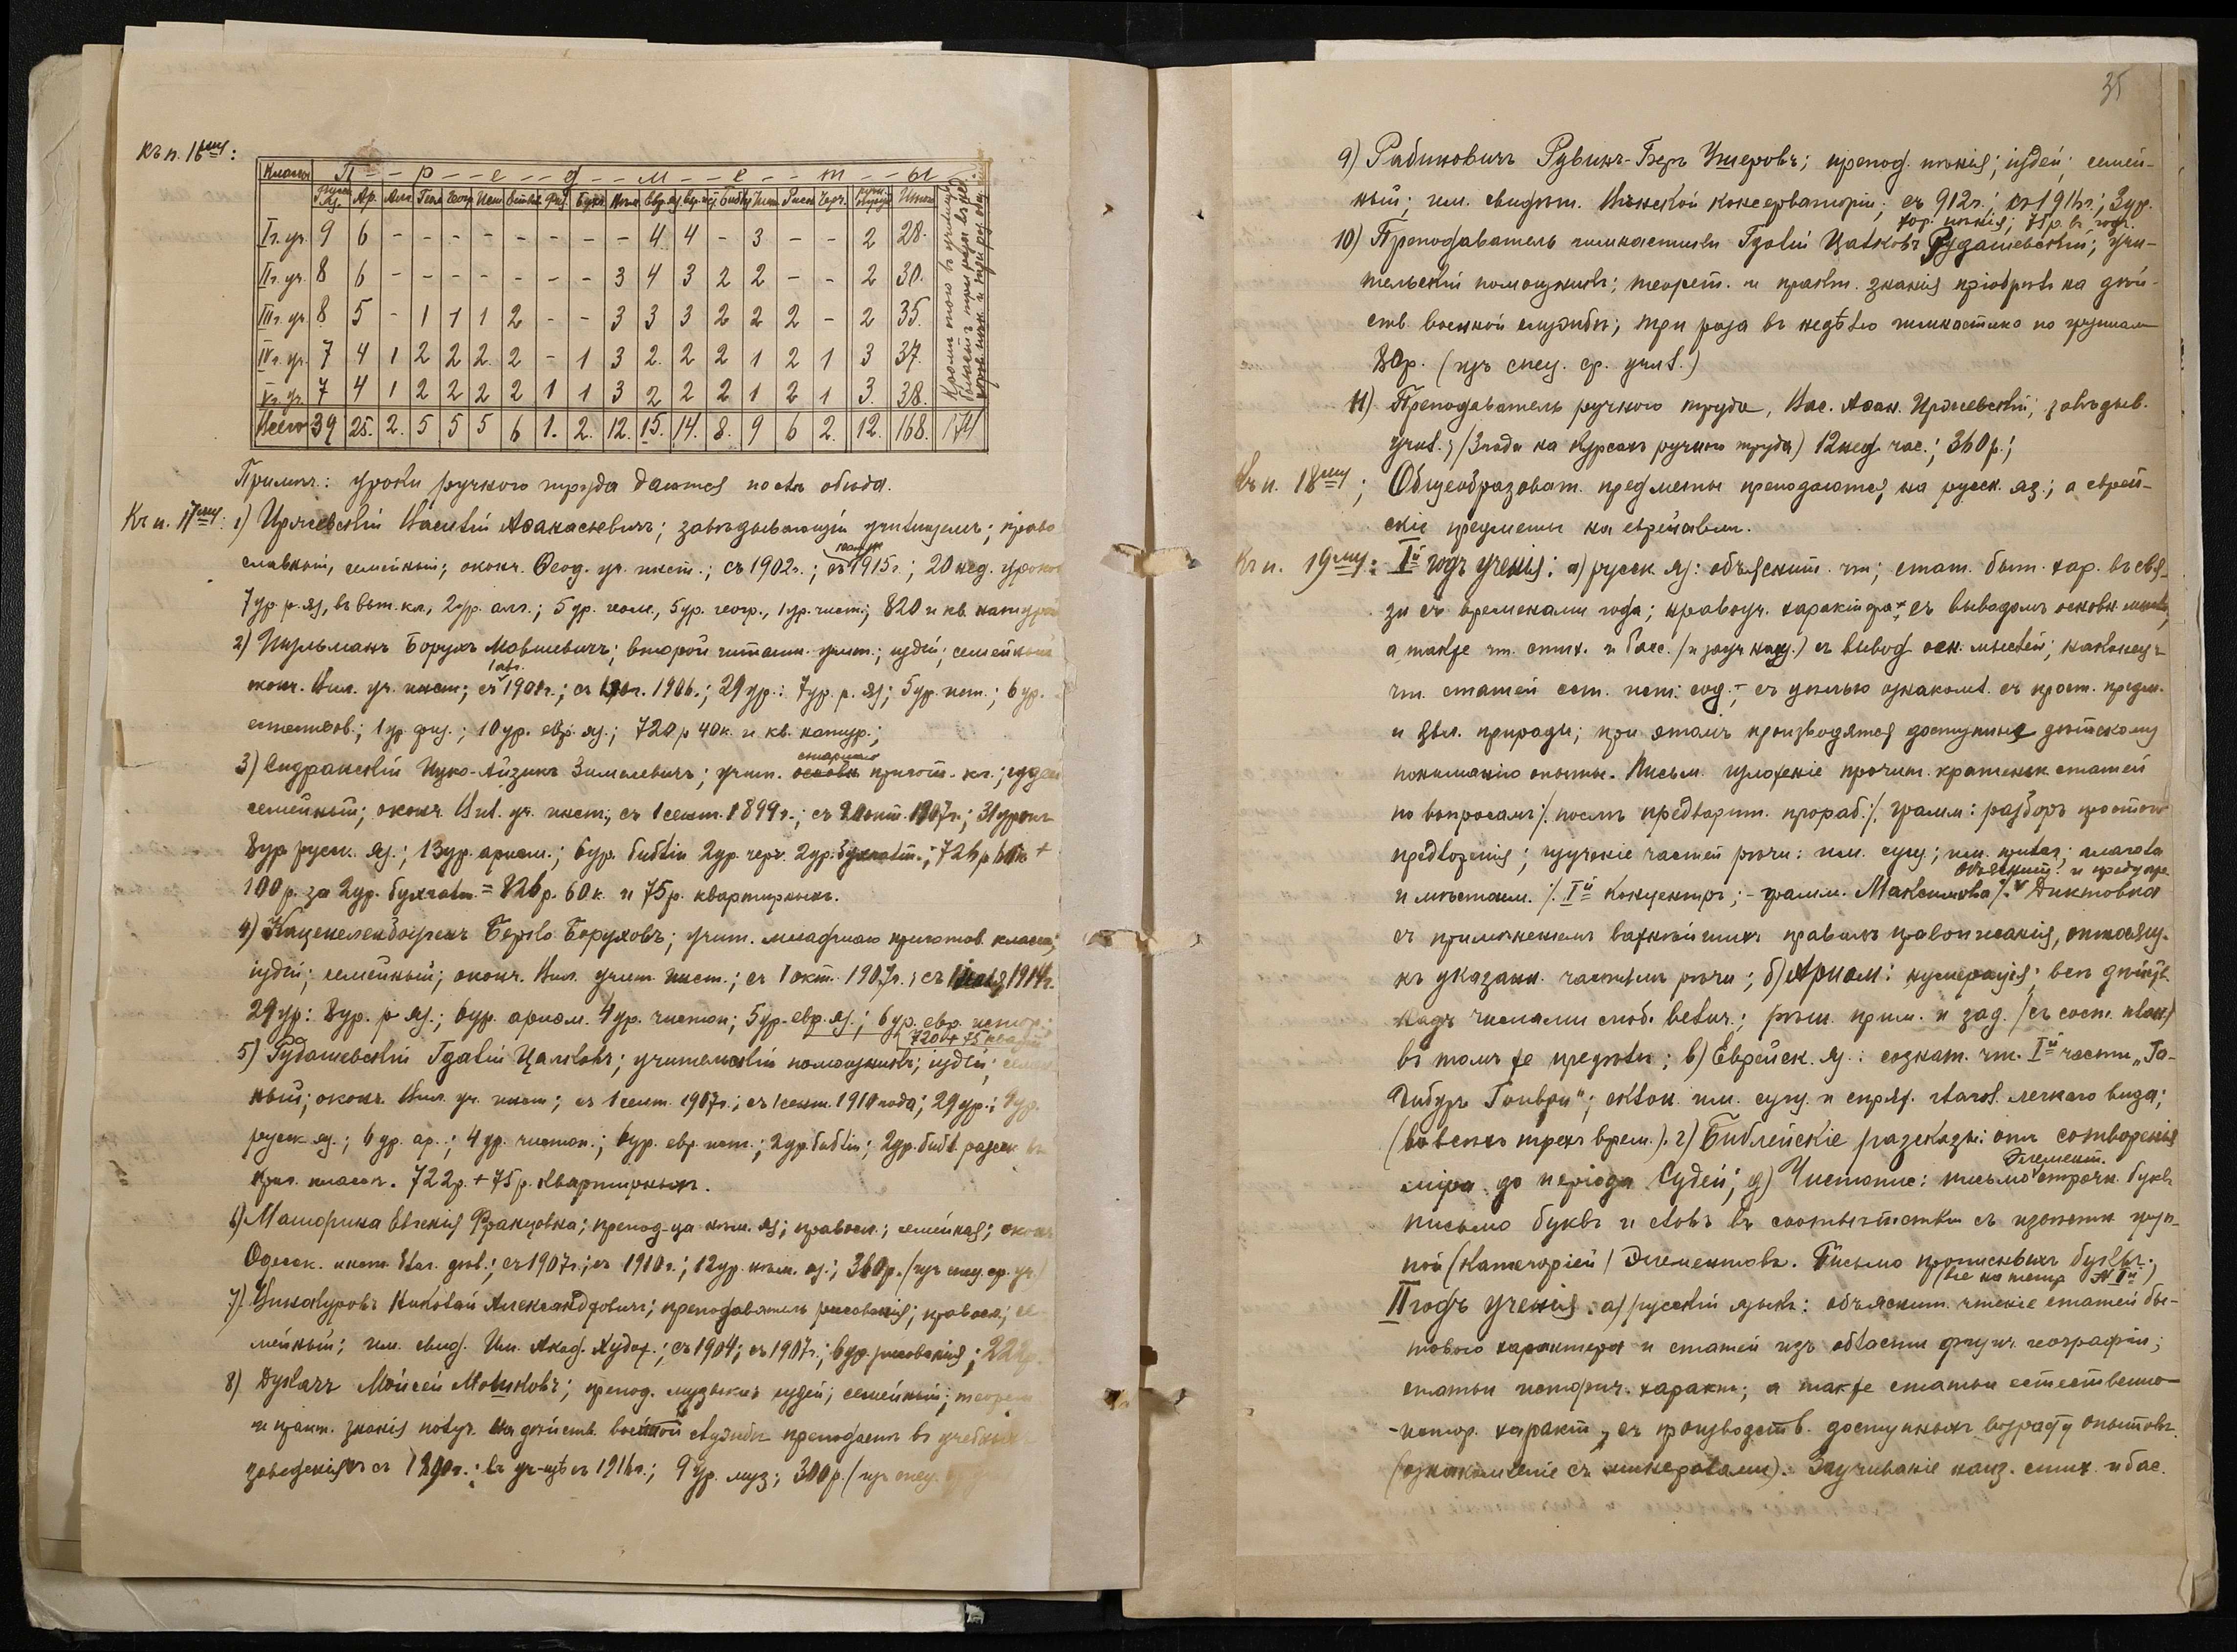 Къ п. 16му:
Классы П - - р - - е - - д - - м - - е - - т - - ы
Русск. яз. Ар. Алг. Геом. Геогр. Ист. Естес. Физ. Бухг. Нѣм. Евр. яз. Евр. ист. Библ. Чист. Рисов. Черч. Итого
I г. уч. 9 6 - - - - - - - - 4 4 - 3 - - 2 28.
II г. уч. 8 6 - - - - - - - 3 4 3 2 2 - - 2 30.
III г. уч. 8 5 - 1 1 1 2 - - 3 3 3 2 2 2 - 2 35.
IV г. уч. 7 4 1 2 2 2 2 - 1 3 2 2 2 1 2 1 3 37.
V г. уч. 7 4 1 2 2 2 2 1 1 3 2 2 2 1 2 1 3. 38.
Всего 39 25. 2. 5 5 5 6 1. 2. 12. 15. 14. 8. 9 6 2. 12. 168. 174
Кромѣ того въ училищѣ
Примѣч.: уроки ручного труда даются послѣ обѣда.
Къ п. 17му: 1) Иржевскій Василій Аѳанасьевичъ; завѣдывающій училищемъ; право
славный, семейный; оконч. Ѳеод. уч. инст.; съ 1902 г.; съ 1915 г.; 20 нед. уроковъ
7 ур. р. яз. въ вып. кл., 2 ур. алг.; 5 ур. геом., 5 ур. геогр., 1 ур. чист.; 820 и кв. натурой
2) Борухъ Мовшевичъ; второй учит.; іудей; семейный
оконч. Вил. уч. инст; съ 1 авг. 1901 г.; съ 1906.; 29 ур.: 7 ур. р. яз; 5 ур. ист.; 6 ур.
естествов.; 1 ур. физ.; 10 ур. евр. яз.; 720 р 40 к. и кв. натур.;
3) Сидранскій Ицко-Айзикъ Зимелевичъ; учит. старшаго пригот. кл.; іудей
семейный; оконч. Вил. уч. инст., съ 1 сент. 1899 г.; съ 1907 г.; 31 урокъ
8 ур русск. яз.; 13 ур. ариѳм.; 6 ур. библіи 2 ур. черч. 2 ур. бухгалт.; 726 р 60 к +
100 р. за 2 ур. бухгалт. = 826 р. 60 к. и 75 р. квартирныхъ.
4) Каценеленбогенъ Берко Боруховъ; учит. младшаго приготов. класса;
іудей; семейный; оконч. Вил. учит. инст.; съ 1 окт. 1907 г.; съ 1 1914 г.
29 ур: 8 ур. р яз.; 6 ур. ариѳм. 4 ур. чистоп; 5 ур. евр. яз.; 6 ур. евр. истор.;
720 р + 75 кварт.
5) Рудашевскій Гдалій Цалковъ; учительскій помощникъ; іудей; семей
ный; оконч. Вил. уч. инст; съ 1 сент. 1907 г.; съ 1 сент. 1910 года; 29 ур.: 9 ур.
русск яз.; 6 ур. ар.; 4 ур. чистоп.; 6 ур. евр. ист.; 2 ур. библіи; 2 ур. библ. разск въ
приг. классѣ. 722 р. + 75 р. квартирныхъ.
6) Маторина Евгенія Францовна; препод-ца нѣм. яз; правосл.; семейная; оконч
Одесск. инст. благ. дѣв.; съ 1907 г.; съ 1910 г.; 12 ур. нѣм. яз.; 360 р. (изъ спец. ср. уч.)
7) Николай Александровичъ; преподаватель рисованія; правосл; се
мейный; им. свид. Им. Акад. Худож.; съ 1904; съ 1907 г.; 6 ур. рисованія; 222 р.
8) Дуклачъ Мойсей Мовшовъ; препод. музыки; іудей; семейный; теорет
и практ. знанія получ. на дѣйств. военной службѣ преподаетъ въ учебныхъ
заведеніяхъ съ 1890 г.: въ уч-щѣ съ 1916 г.; 9 ур. муз; 300 р. (изъ спец.
35
9) Рабиновичъ Рувинъ-Беръ Ушеровъ; препод. пѣнія; іудей; семей-
ный; им. свидѣт. Вѣнской консерваторіи; съ 912 г.; съ 1916 г.; 3 ур.
хор. пѣнія; 75 р. въ годъ.
10) Преподаватель гимнастики Гдалій Цалковъ Рудашевскій; учи-
тельскій помощникъ; теорет. и практ. знанія пріобрѣлъ на дѣй-
ств. военной службѣ; три раза въ недѣлю гимнастика по группамъ
80 р. (изъ спец. ср. учил.)
11) Преподаватель ручного труда, Вас. Аѳан. Иржевскій; завѣдыв.
учил.; (3 года на курсахъ ручного труда) 12 нед. час.; 360 р.;
Къ п. 18му; Общеобразоват. предметы преподаются на русск. яз.; а еврей-
скіе предметы на еврейскомъ.
Къ п. 19му: Iй годъ ученія: а) русск яз: объяснит. чт; стат. быт. хар. въ свя-
зи съ временами года; нравоуч. характера съ выводомъ основн. мысли,
а также чт. стих. и басс. (и зауч наиз.) съ вывод осн. мыслей; наконецъ
чт. статей ест. ист. сод. - съ цѣлью ознакомл. съ прост. предм.
и явл. природы; при этомъ производятся доступные дѣтскому
пониманію опыты. Письм. изложеніе прочит. кратеньк статей
по вопросамъ /. послѣ предварит. прораб./. грамм: разборъ простого
предложенія; изученіе частей рѣчи: им. сущ; им. прилаг; глагола
и мѣстоим. /. Iй концентръ; - грамм. Максимова /. Объяснит. и предупр. Диктовка
съ примѣненіемъ важнѣйшихъ правилъ правописанія, относящ.
къ указанн. частямъ рѣчи; б) Ариѳм: нумерація; всѣ дѣйств.
надъ числами люб. велич.; рѣш. прим. и зад. (съ сост. плана)
въ томъ же предѣлѣ; в) Еврейск. яз.: сознат. чт. Iй части „Га-
Дибуръ Гоиври“; склон. им. сущ. и спряж. глагол. легкаго вида;
(во всѣхъ трехъ врем.). г) Библейскіе разсказы: отъ сотворенія
міра до періода Судей; д) Чистопис: письмо элемент. строчн. буквъ
письмо буквъ и словъ въ соотвѣтствіи съ изоженн груп-
пой (категоріей) элементовъ. Письмо прописныхъ буквъ.
(все на тетр № 1й)
II годъ ученія. а) русскій языкъ: объяснит. чтеніе статей бы-
тового характера и статей изъ области физич. географіи;
статьи историч. характ; а также статьи естественно-
-истор. характ, съ производств. доступныхъ возрасту опытовъ.
(ознакомленіе съ минералами). Заучиваніе наиз. стих. и бас.